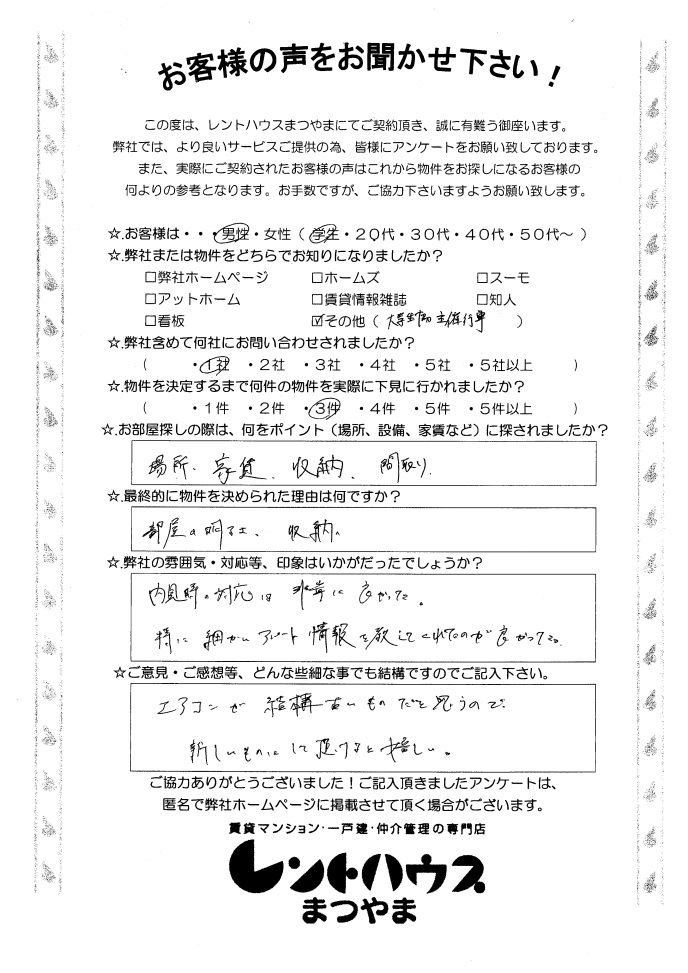 お客様の声をお聞かせ下さい！
この度は、レントハウスまつやまにてご契約頂き、誠に有難う御座います。
弊社では、より良いサービスご提供の為、皆様にアンケートをお願い致しております。
また、実際にご契約されたお客様の声はこれから物件をお探しになるお客様の
何よりの参考となります。お手数ですが、ご協力下さいますようお願い致します。
☆.お客様は・・・男性・女性（ 学生・２０代・３０代・４０代・５０代～ ）
☆.弊社または物件をどちらでお知りになりましたか？
□弊社ホームページ □ホームズ □スーモ
□アットホーム □賃貸情報雑誌 □知人
□看板 ☑その他（ 大学生協 主催行事 ）
☆.弊社含めて何社にお問い合わせされましたか？
（ ・１社 ・２社 ・３社 ・４社 ・５社 ・５社以上 ）
☆.物件を決定するまで何件の物件を実際に下見に行かれましたか？
（ ・１件 ・２件 ・３件 ・４件 ・５件 ・５件以上 ）
☆.お部屋探しの際は、何をポイント（場所、設備、家賃など）に探されましたか？
場所、家賃、収納、間取り、
☆.最終的に物件を決められた理由は何ですか？
部屋の明るさ、収納、
☆.弊社の雰囲気・対応等、印象はいかがだったでしょうか？
内見時の対応は 非常に 良かった。
特に 細かい アパート 情報を教えてくれたのが良かった。
☆ご意見・ご感想等、どんな些細な事でも結構ですのでご記入下さい。
エアコンが 結構古いものだと思うので
新しいものにして頂けると嬉しい。
ご協力ありがとうございました！ご記入頂きましたアンケートは、
匿名で弊社ホームページに掲載させて頂く場合がございます。
賃貸マンション・一戸建・仲介管理の専門店
レントハウス
まつやま